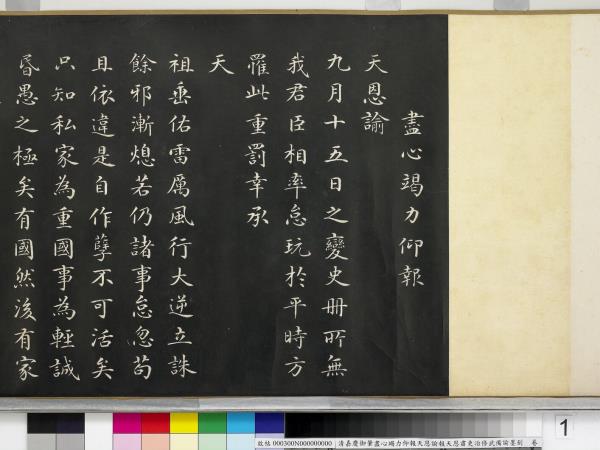 盡心竭力仰報
天恩諭
九月十五日之變史冊所無
我君臣相率怠玩於平時方
罹此重罰幸承
天
祖垂佑雷厲風行大逆立誅
餘邪漸熄若仍諸事怠忽苟
且依違是自作孽不可活矣
只知私家為重國事為輕誠
昏愚之極矣有國然後有家
故帖000300N000000000 清嘉慶御筆盡心竭力仰報天恩諭報天恩肅吏治修武備諭墨刻 卷
1